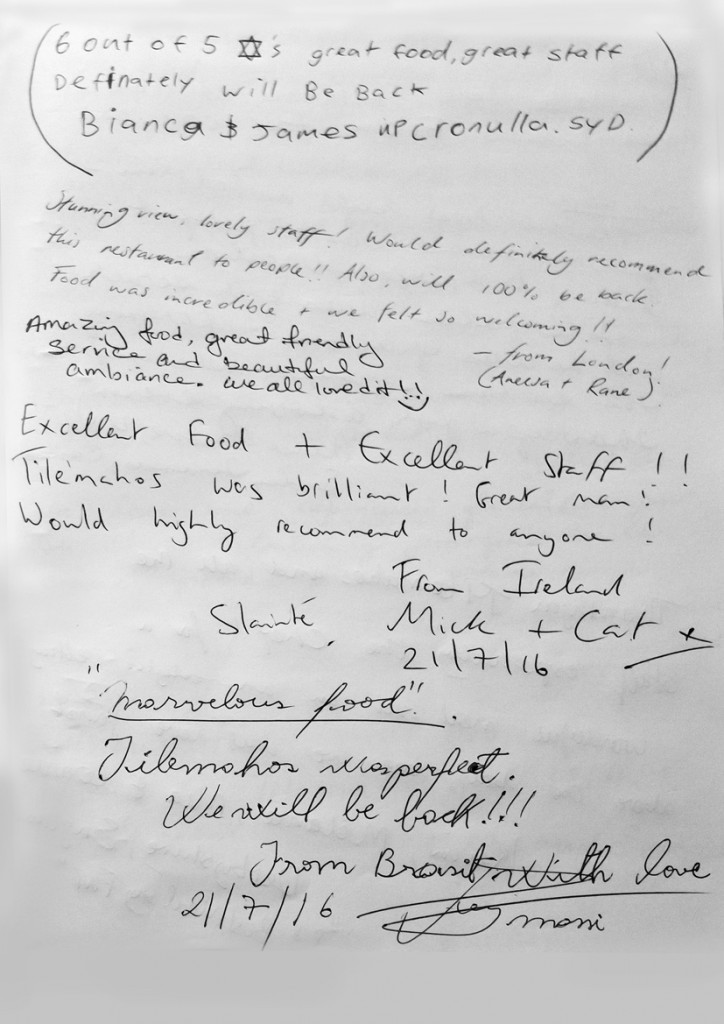 6 out of 5 ✡'s great food, great staff
Definately will Be Back
Bianca & James upcronulla. SYD.
Stunning view, lovely staff! Would definitely recommend
this restaurant to people!! Also, will 100% be back.
Food was incredible + we felt so welcoming!!
– from London!
(Aneesa + Rane)
Amazing food, great friendly
service and beautiful
ambiance. We all loved it!!
Excellent Food + Excellent Staff!!
Tilémahos was brilliant! Great man!
Would highly recommend to anyone!
From Ireland
Slainté, Mick + Cat x
21/7/16
"marvelous food".
Tilemahos was perfect.
We will be back!!!
From Brasil with love
21/7/16